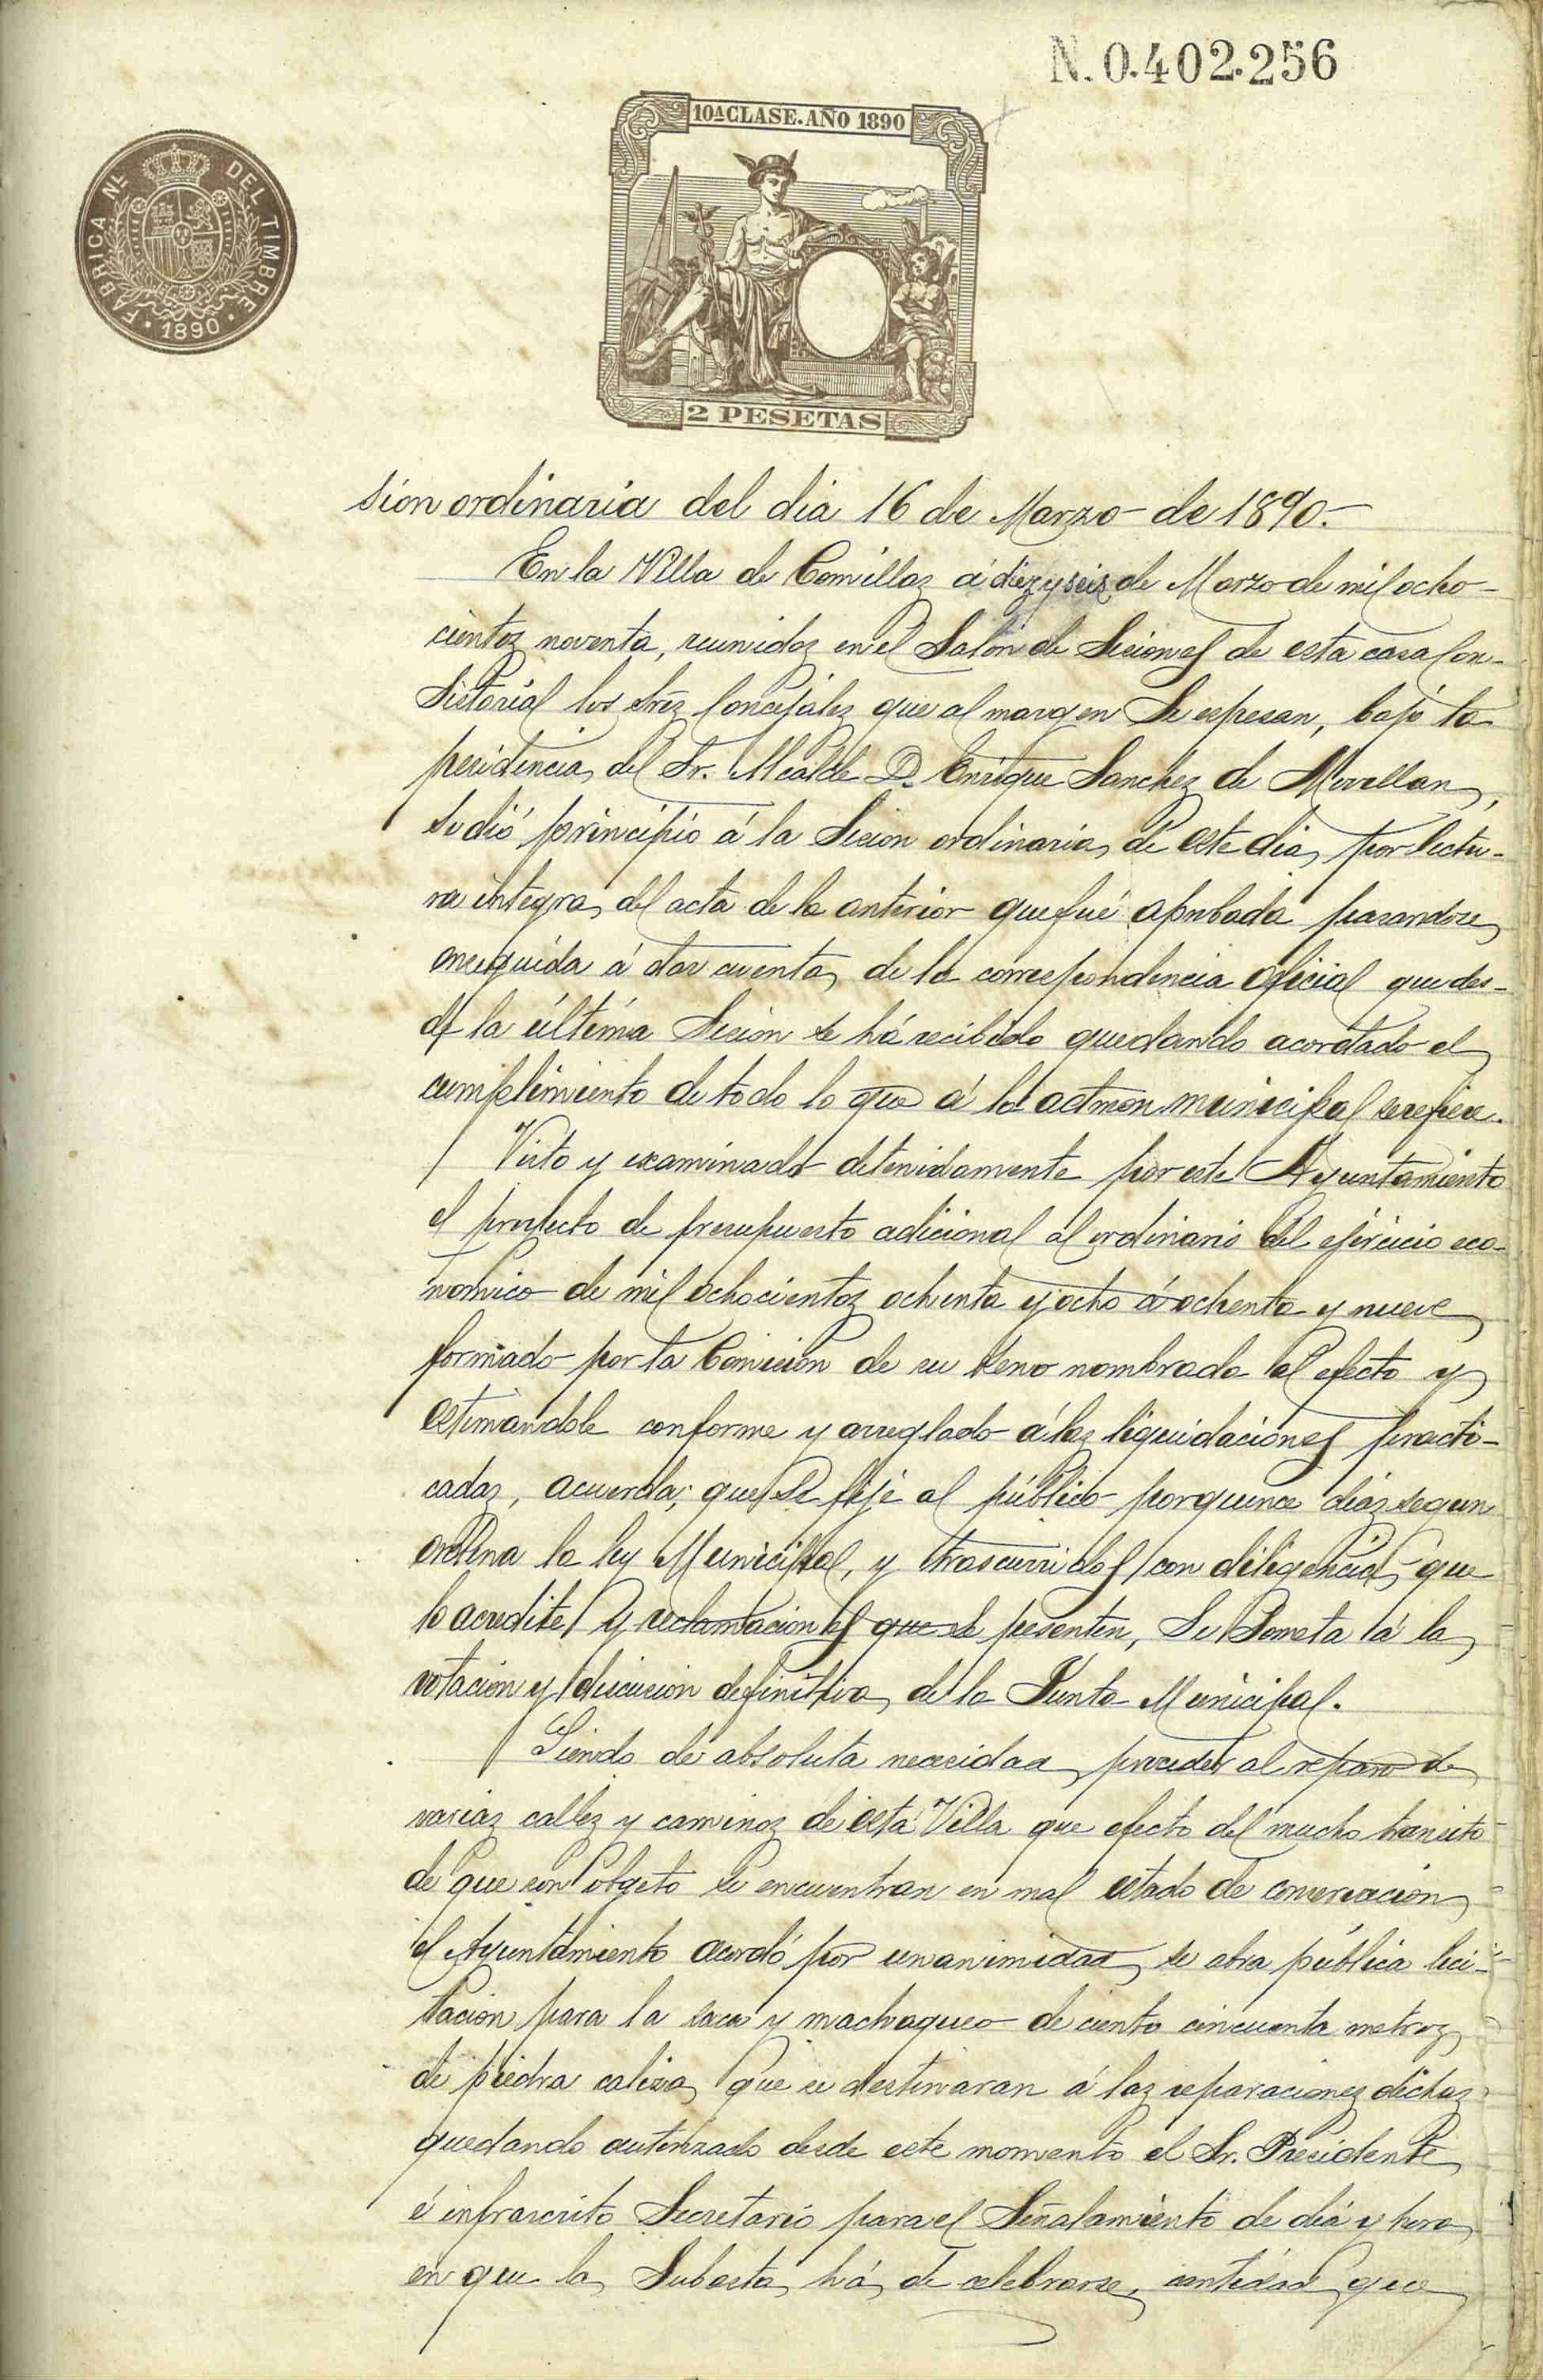 N.0.402.256
10ª CLASE. AÑO 1890
FÁBRICA Nᴸ DEL TIMBRE
· 1890 ·
2 PESETAS
sion ordinaria del dia 16 de Marzo de 1890.-
En la Villa de Comillas á diez y seis de Marzo de mil ocho-
cientos noventa, reunidos en el Salon de Seciones de esta casa Con-
sistorial los Sres Concejales que al margen se espresan, bajo la
presidencia del Sr. Alcalde D. Enrique Sanchez de Movellan,
se dió principio á la Secion ordinaria de este dia, por lectu-
ra integra del acta de la anterior que fué aprobada pasandose
enseguida á dar cuenta de la correspondencia oficial que des-
de la última Secion se há recibido quedando acordado el
cumplimiento de todo lo que á la admon municipal se refiere.
Visto y examinado detenidamente por este Ayuntamiento
el proyecto de presupuesto adicional al ordinario del ejercicio eco-
nomico de mil ochocientos ochenta y ocho á ochenta y nueve
formado por la Comision de su seno nombrada al efecto y
estimandole conforme y arreglado á las liquidaciones practi-
cadas, acuerda; que se fije al público por quince dias segun
ordena la ley Municipal, y trascurridos con diligencia que
lo acredite y reclamaciones que se presenten, se someta á la
votacion y discusion definitiva de la Junta Municipal.
Siendo de absoluta necesidad proceder al reparo de
varias calles y caminos de esta Villa que efecto del mucho transito
de que son objeto se encuentran en mal estado de conservacion
el Ayuntamiento acordó por unanimidad se abra pública lici-
tacion para la saca y machaqueo de ciento cincuenta metros
de piedra caliza que se destinaran á las reparaciones dichas
quedando autorizado desde este momento el Sr. Presidente
é infrascrito Secretario para el Señalamiento de dia y hora
en que la Subasta há de celebrarse, cantidad que